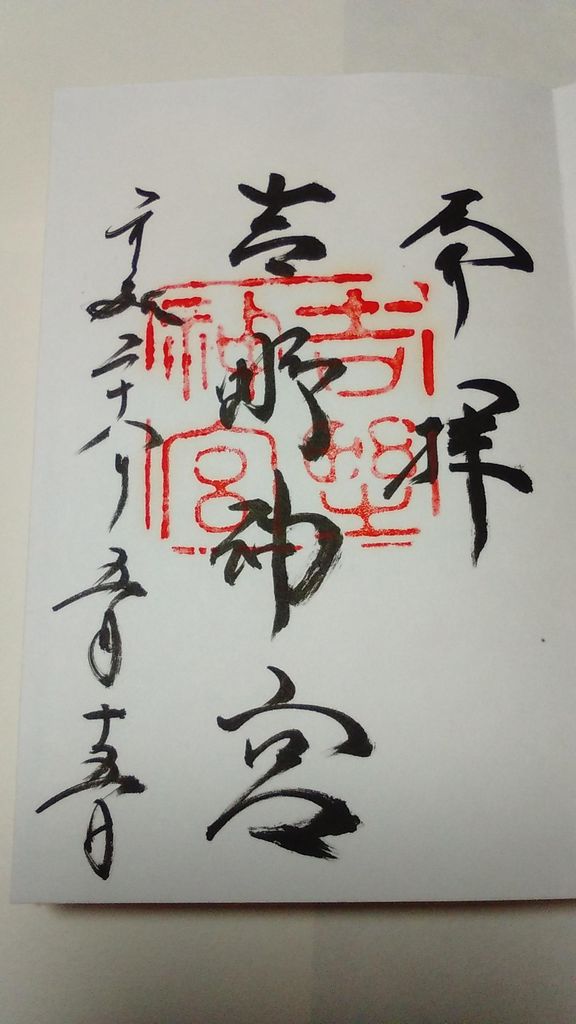 奉拝
吉野神宮
平成二十八年五月十五日
吉野
神宮